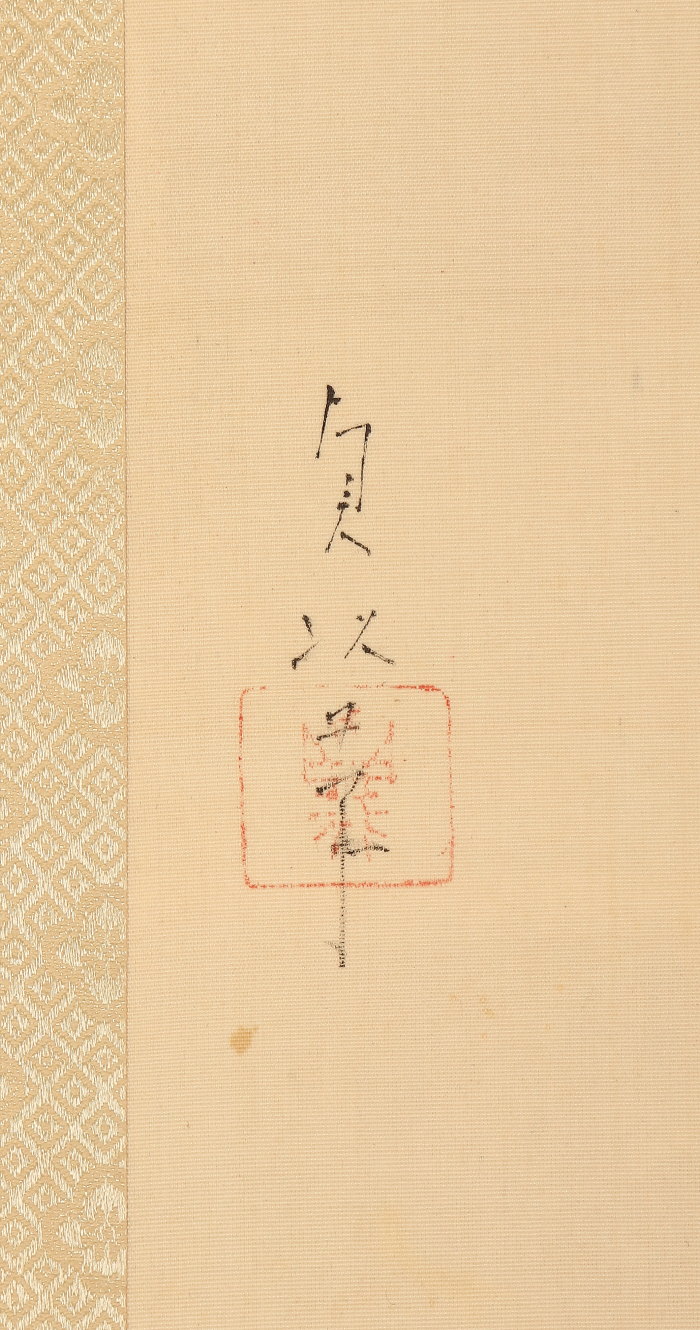 貞以筆